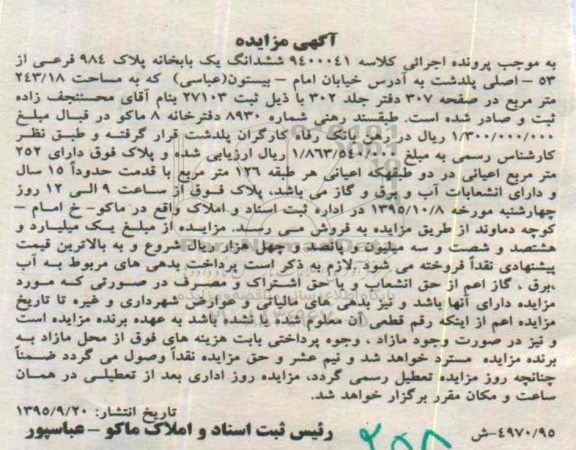 آگهی مزایده
به موجب پرونده اجرائی کلاسه ۹۴۰۰۰۴۱ ششدانگ یک بابخانه پلاک ۹۸۴ فرعی از
۵۳ – اصلی پلدشت به آدرس خیابان امام – بیستون(عباسی) که به مساحت ۲۴۳/۱۸
متر مربع در صفحه ۳۰۷ دفتر جلد ۳۰۲ با ذیل ثبت ۲۷۱۰۳ بنام آقای محسنتجف زاده
ثبت و صادر شده است. طبقسند رهنی شماره ۸۹۳۰ دفترخانه ۸ ماکو در قبال مبلغ
۱/۳۰۰/۰۰۰/۰۰۰ ریال در رهن بانک رفاه کارگران پلدشت قرار گرفته و طبق نظر
کارشناس رسمی به مبلغ ۱/۸۶۳/۵۴۰/۰۰۰ ریال ارزیابی شده و پلاک فوق دارای ۲۵۲
متر مربع اعیانی در دو طبقهکه اعیانی هر طبقه ۱۲۶ متر مربع با قدمت حدوداً ۱۵ سال
و دارای انشعابات آب و برق و گاز می باشد، پلاک فوق از ساعت ۹ الی ۱۲ روز
چهارشنبه مورخه ۱۳۹۵/۱۰/۸ در اداره ثبت اسناد و املاک واقع در ماکو- خ امام –
کوچه دماوند از طریق مزایده به فروش می رسد. مزایده از مبلغ یک میلیارد و
هشتصد و شصت و سه میلیون و پانصد و چهل هزار ریال شروع و به بالاترین قیمت
پیشنهادی نقداً فروخته می شود. لازم به ذکر است پرداخت بدهی های مربوط به آب
،برق ، گاز اعم از حق انشعاب و یا حق اشتراک و مصرف در صورتی که مورد
مزایده دارای آنها باشد و نیز بدهی های مالیاتی و عوارض شهرداری و غیره تا تاریخ
مزایده اعم از اینکه رقم قطعی آن معلوم شده یا نشده باشد به عهده برنده مزایده است
و نیز در صورت وجود مازاد ، وجوه پرداختی بابت هزینه های فوق از محل مازاد به
برنده مزایده مسترد خواهد شد و نیم عشر و حق مزایده نقداً وصول می گردد ضمناً
چنانچه روز مزایده تعطیل رسمی گردد، مزایده روز اداری بعد از تعطیلی در همان
ساعت و مکان مقرر برگزار خواهد شد.
تاریخ انتشار: ۱۳۹۵/۹/۲۰
رئیس ثبت اسناد و املاک ماکو – عباسپور
۴۹۷۰/۹۵–ش